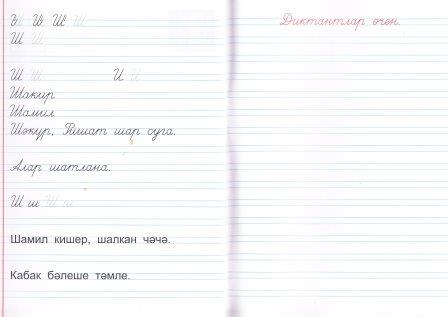 И И Ш Ш
Ш Ш
Ш Ш И И
Шакир
Шамил
Шәкүр, Ришат шар суга.
Алар шатлана.
Ш ш Ш ш
Шамил кишер, шалкан чәчә.
Кабак бәлеше тәмле.
Диктантлар өчен.